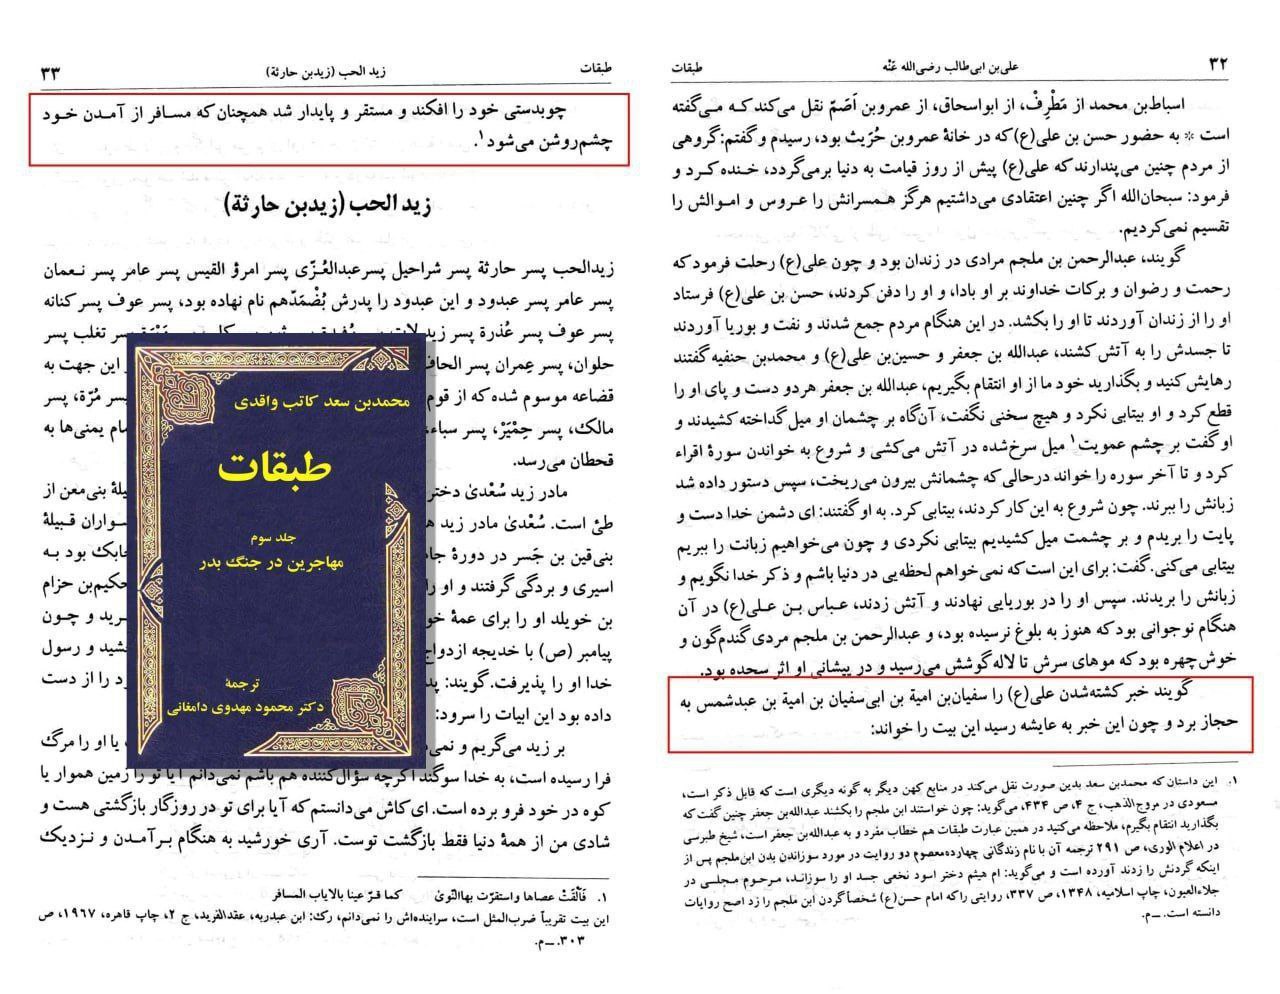 ۳۲
علی‌بن ابی‌طالب رضی‌الله عَنْه
طبقات
اسباط‌بن محمد از مَطْرِفْ، از ابواسحاق، از عمروبن اَصَمّ نقل می‌کند که می‌گفته
است * به حضور حسن بن علی(ع) که در خانهٔ عمروبن حُرَیث بود، رسیدم و گفتم: گروهی
از مردم چنین می‌پندارند که علی(ع) پیش از روز قیامت به دنیا برمی‌گردد، خنده کرد و
فرمود: سبحان‌الله اگر چنین اعتقادی می‌داشتیم هرگز همسرانش را عروس و اموالش را
تقسیم نمی‌کردیم.
گویند، عبدالرحمن بن ملجم مرادی در زندان بود و چون علی(ع) رحلت فرمود که
رحمت و رضوان و برکات خداوند بر او بادا، و او را دفن کردند، حسن بن علی(ع) فرستاد
او را از زندان آوردند تا او را بکشد. در این هنگام مردم جمع شدند و نفت و بوریا آوردند
تا جسدش را به آتش کشند، عبدالله بن جعفر و حسین‌بن علی(ع) و محمدبن حنفیه گفتند
رهایش کنید و بگذارید خود ما از او انتقام بگیریم، عبدالله بن جعفر هر دو دست و پای او را
قطع کرد و او بیتابی نکرد و هیچ سخنی نگفت، آن‌گاه بر چشمان او میل گداخته کشیدند و
او گفت بر چشم عمویت۱ میل سرخ‌شده در آتش می‌کشی و شروع به خواندن سورهٔ اقراء
کرد و تا آخر سوره را خواند درحالی که چشمانش بیرون می‌ریخت، سپس دستور داده شد
زبانش را ببرند. چون شروع به این کار کردند، بیتابی کرد. به او گفتند: ای دشمن خدا دست و
پایت را بریدم و بر چشمت میل کشیدیم بیتابی نکردی و چون می‌خواهیم زبانت را ببریم
بیتابی می‌کنی. گفت: برای این است که نمی‌خواهم لحظه‌یی در دنیا باشم و ذکر خدا نگویم و
زبانش را بریدند. سپس او را در بوریایی نهادند و آتش زدند، عباس بن علی(ع) در آن
هنگام نوجوانی بود که هنوز به بلوغ نرسیده بود، و عبدالرحمن بن ملجم مردی گندم‌گون و
خوش‌چهره بود که موهای سرش تا لاله گوشش می‌رسید و در پیشانی او اثر سجده بود.
گویند خبر کشته‌شدن علی(ع) را سفیان‌بن امیة بن ابی‌سفیان بن امیة بن عبدشمس به
حجاز برد و چون این خبر به عایشه رسید این بیت را خواند:
۱. این داستان که محمدبن سعد بدین صورت نقل می‌کند در منابع کهن دیگر به گونه دیگری است که قابل ذکر است،
مسعودی در مروج الذهب، ج ۴، ص ۴۳۴، می‌گوید: چون خواستند ابن ملجم را بکشند عبدالله‌بن جعفر چنین گفت که
بگذارید انتقام بگیرم، ملاحظه می‌کنید در همین عبارت طبقات هم خطاب مفرد و به عبدالله‌بن جعفر است، شیخ طبرسی
در اعلام الوری، ص ۲۹۱ ترجمه آن با نام زندگانی چهارده‌معصوم دو روایت در مورد سوزاندن بدن ابن‌ملجم پس از
اینکه گردنش را زدند آورده است و می‌گوید: ام هیثم دختر اسود نخعی جسد او را سوزاند، مرحوم مجلسی در
جلاءالعیون، چاپ اسلامیه، ۱۳۴۸، ص ۳۳۷، روایتی را که امام حسن(ع) شخصاً گردن ابن ملجم را زد اصح روایات
دانسته است. ــ م.
طبقات
زید الحب (زیدبن حارثة)
۳۳
چوبدستی خود را افکند و مستقر و پایدار شد همچنان که مسافر از آمدن خود
چشم‌روشن می‌شود۱.
زید الحب (زیدبن حارثة)
زیدالحب پسر حارثة پسر شراحیل پسر عبدالعُزّی پسر امرؤ القیس پسر عامر پسر نعمان
پسر عامر پسر عبدود و این عبدود را پدرش بُضْمَدّهم نام نهاده بود، پسر عوف پسر کنانه
پسر عوف پسر عُذرة پسر زید لات پسر تغلب پسر
حلوان، پسر عِمران پسر الحاف این جهت به
قضاعه موسوم شده که از قوم پسر مُرّة، پسر
مالک، پسر حِمْیَرْ، پسر سباء، یمنی‌ها به
قحطان می‌رسد.
مادر زید سُعْدیٰ دختر بنی‌معن از
طیّ است. سُعْدیٰ مادر زید سواران قبیلهٔ
بنی‌قین بن جَسر در دورهٔ بود به
اسیری و بردگی گرفتند و او را حکیم‌بن حزام
بن خویلد او را برای عمهٔ و چون
پیامبر (ص) با خدیجه ازدواج و رسول
خدا او را پذیرفت. گویند: را از دست
داده بود این ابیات را سرود:
بر زید می‌گریم و یا او را مرگ
فرا رسیده است، به خدا سوگند اگرچه سؤال‌کننده هم باشم نمی‌دانم آیا تو را زمین هموار یا
کوه در خود فرو برده است. ای کاش می‌دانستم که آیا برای تو در روزگار بازگشتی هست و
شادی من از همهٔ دنیا فقط بازگشت توست. آری خورشید به هنگام برآمدن و نزدیک
۱. فَألْقَتْ عصاها واستقرّت بهاالنّویٰ کما قرّ عینا بالایاب المسافر
این بیت تقریباً ضرب‌المثل است، سراینده‌اش را نمی‌دانم، رک: ابن عبدربه، عقدالفرید، ج ۲، چاپ قاهره، ۱۹۶۷، ص
۳۰۳. ــ م.
محمدبن سعد کاتب واقدی
طبقات
جلد سوم
مهاجرین در جنگ بدر
ترجمهٔ
دکتر محمود مهدوی دامغانی